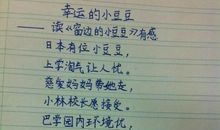 幸运的小豆豆
——读《窗边的小豆豆》有感
日本有位小豆豆，
上学淘气让人忧。
慈爱妈妈带她走，
小林校长愿接受。
巴学园内环境优，